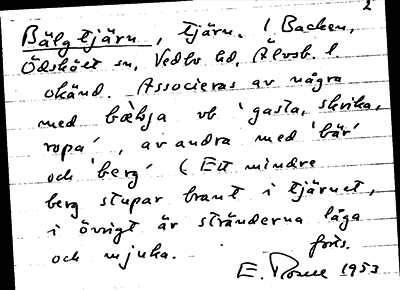 2
Bälgtjärn, tjärn. I Backen,
Ödskölt sn, Vedbo hd, Älvsb. l.
okänd. Associeras av några
med vb 'gasta, skrika,
ropa', av andra med 'bär'
och 'berg' (Ett mindre
berg stupar brant i tjärnet,
i övrigt är stränderna låga
och mjuka.
E. 1953